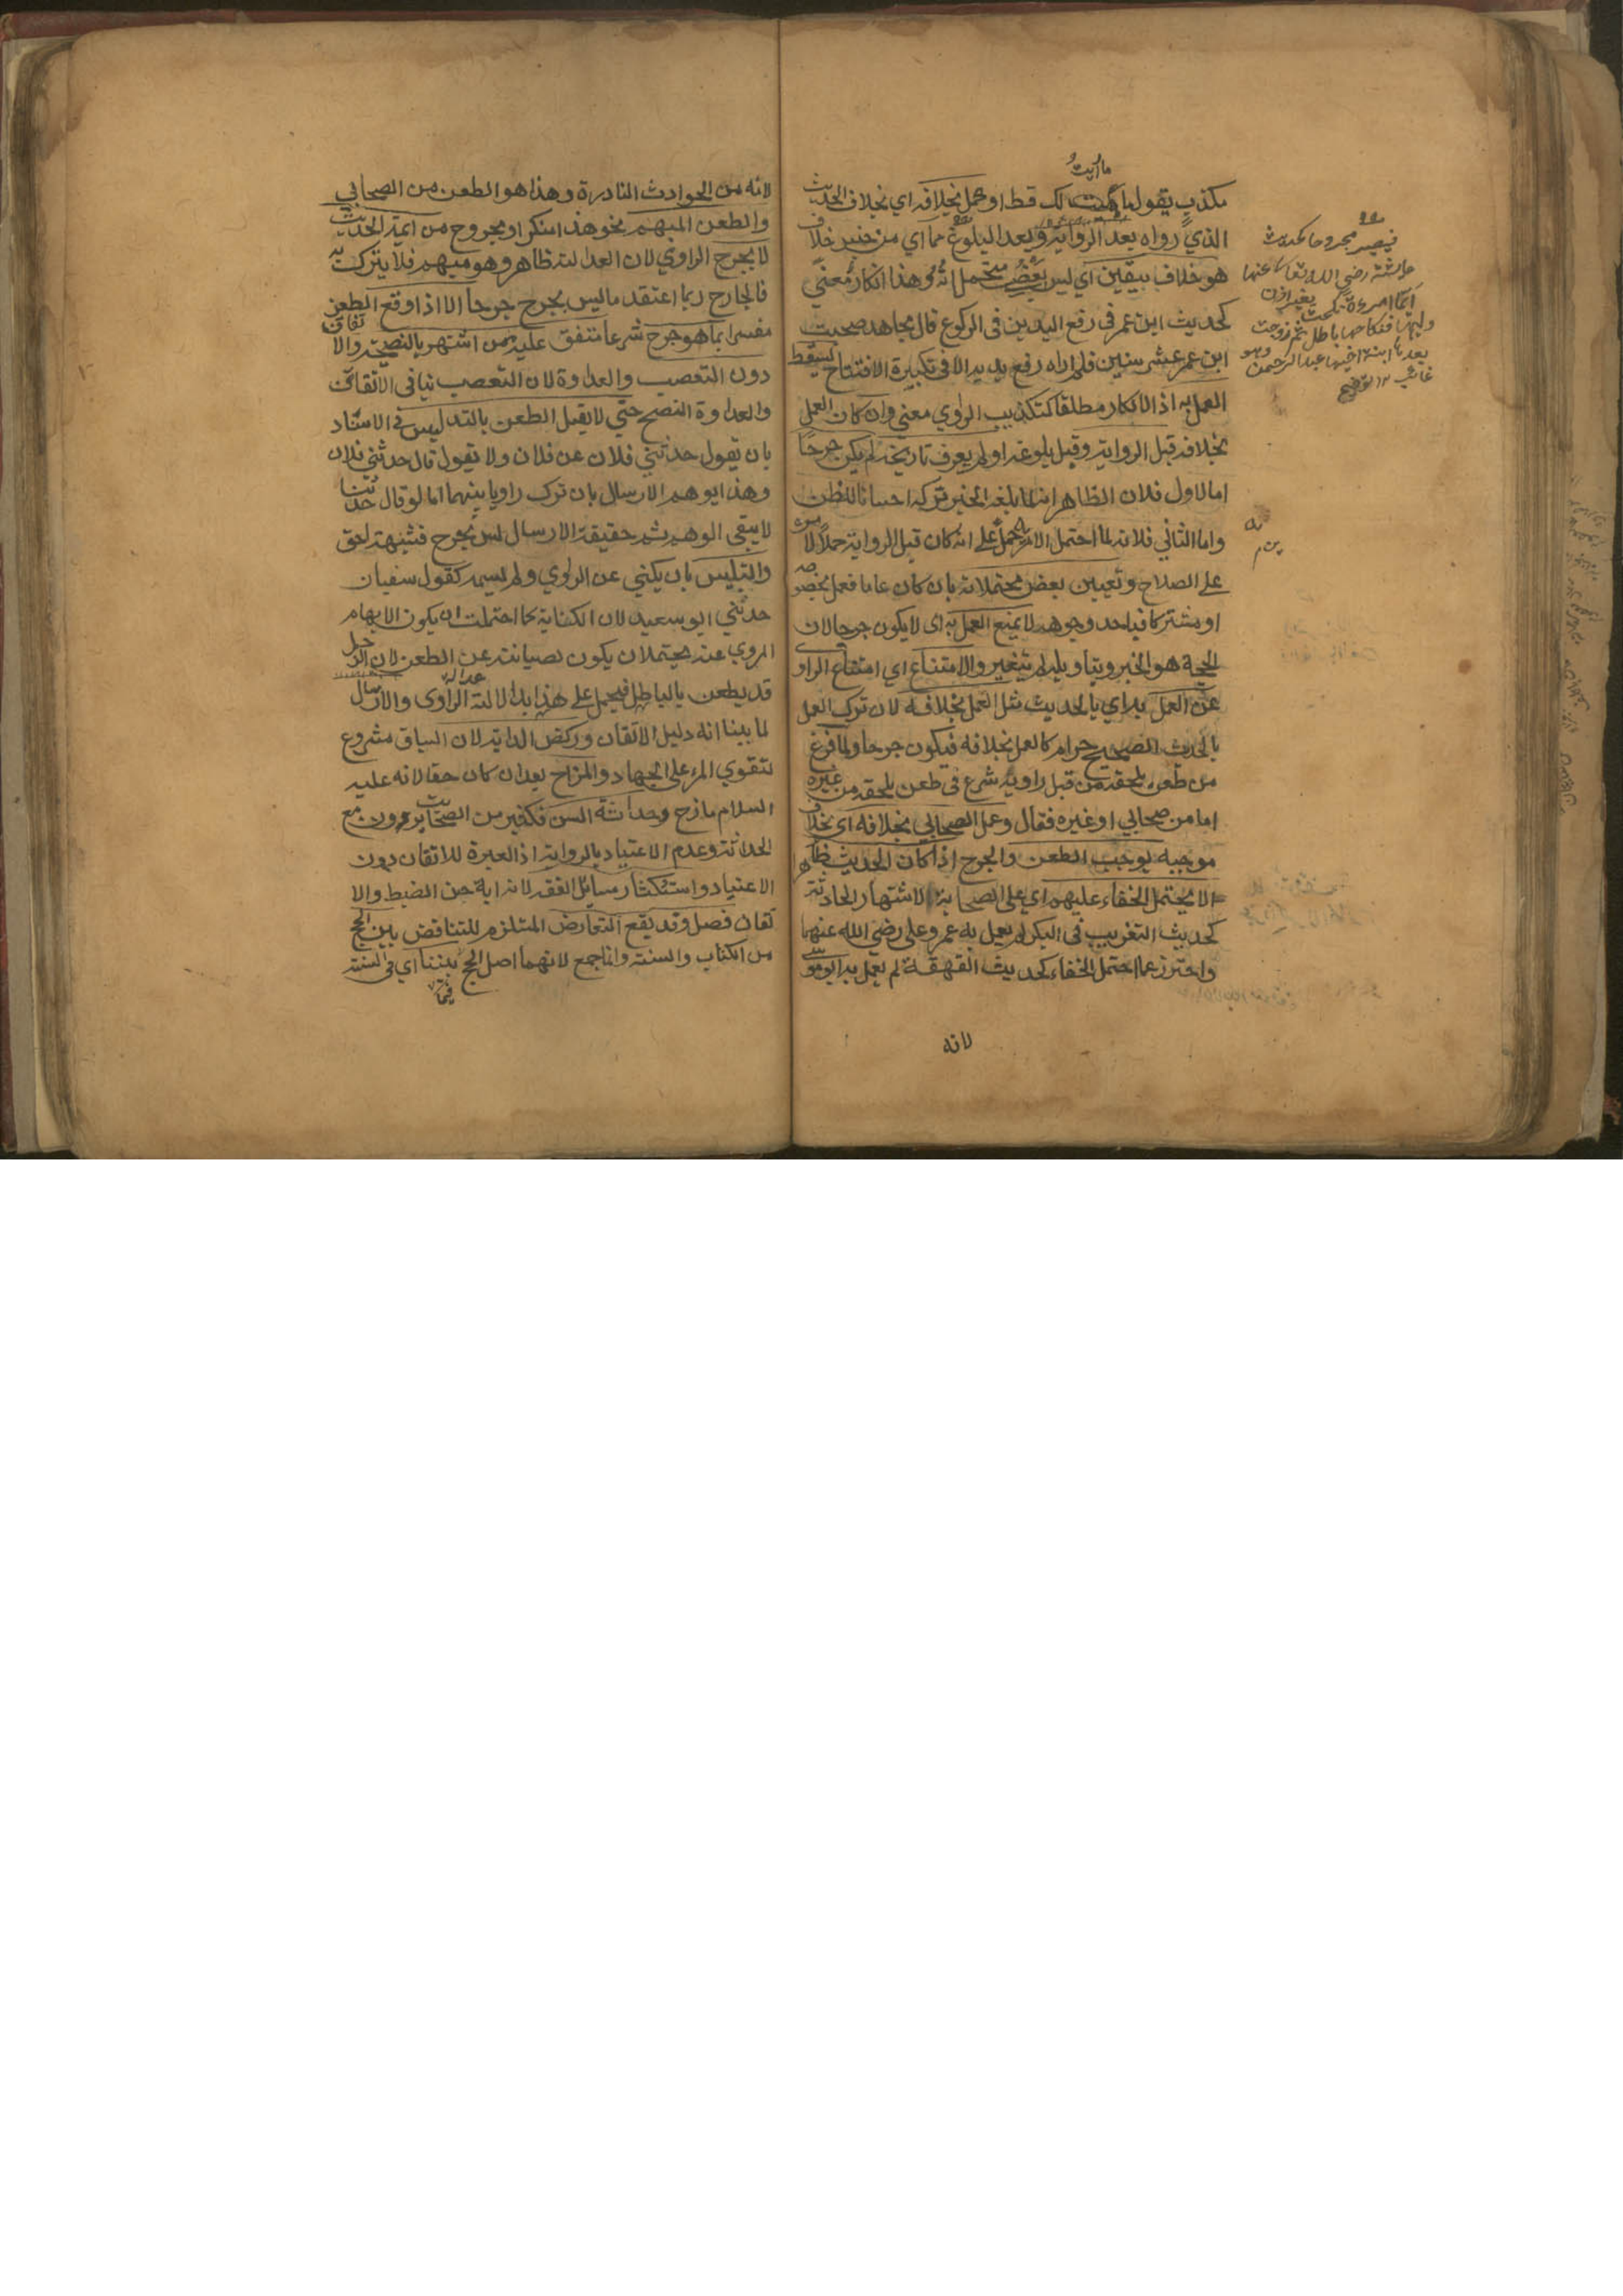 ما رويت
مكذب يقول ما رويت لك قط او عمل بخلافه اي بخلاف الحديث
الذي رواه بعد الرواية وبعد البلوغ مما اي من خبر خلاف
هو خلاف بيقين اي ليس بعض محتملاته وهذا انكار معنى
كحديث ابن عمر في رفع اليدين في الركوع قال مجاهد صحبت
ابن عمر عشر سنين فلم اراه رفع يديه الا في تكبيرة الافتتاح يسقط
العمل به اذ الانكار مطلقا كتكذيب الراوي معنى وان كان العمل
بخلافه قبل الرواية وقبل بلوغه او لم يعرف تاريخه لم يكن جرحا
اما الاول فلان الظاهر انه لما بلغه الخبر تركه احسانا للظن
واما الثاني فلانه لما احتمل الامرين حمل على انه كان قبل الرواية حملا
على الصلاح وتعيين بعض محتملاته بان كان عاما فعمل بخصوصه
او مشتركا فباحد وجوهه لا يمنع العمل به اي لا يكون جرحا لان
الحجة هو الخبر وبتاويله لم يتغير والامتناع اي امتناع الراوي
عن العمل به اي بالحديث مثل العمل بخلافه لان ترك العمل
بالحديث الصحيح حرام كالعمل بخلافه فيكون جرحا ولما فرغ
من طعن يلحقه من قبل راويه شرع في طعن يلحقه من غيره
اما من صحابي او غيره فقال وعمل الصحابي بخلافه اي بخلاف
موجبه يوجب الطعن والجرح اذا كان الحديث ظاهرا
لا يحتمل الخفاء عليهم اي على الصحابة لاشتهار الحادثة
كحديث التغريب في البكر لم يعمل به عمر وعلى رضي الله عنهما
واحترز عما احتمل الخفاء كحديث القهقهة لم يعمل به ابو موسى
لانه
فيصير مجروحا كحديث
عائشة رضي الله تعالى عنها
ايما امرءة نكحت بغير اذن
وليها فنكاحها باطل ثم زوجت
بعدها ابنة اخيها عبد الرحمن وهو
غائب ١٢ توضيح
لانه من الحوادث النادرة وهذا هو الطعن من الصحابي
والطعن المبهم نحو هذا منكر او مجروح من ايمة الحديث
لا يجرح الراوي لان العدالة ظاهر وهو مبهم فلا يترك به
فالجارح ربما اعتقد ما ليس بجرح جرحا الا اذا وقع الطعن
مفسرا بما هو جرح شرعا متفق عليه ممن اشتهر بالنصيحة والاتقان
دون التعصب والعداوة لان التعصب ينافي الاتقان
والعداوة النصح حتي لا يقبل الطعن بالتدليس في الاسناد
بان يقول حدثني فلان عن فلان ولا يقول قال حدثني فلان
وهذا يوهم الارسال بان ترك راويا بينهما اما لو قال حدثنا
لا يبقى الوهم ثم حقيقة الارسال ليس بجرح فشبهته احق
والتلبيس بان يكني عن الراوي ولم يسمه كقول سفيان
حدثني ابو سعيد لان الكناية كما احتملت ان يكون الابهام
المروي عنه يحتمل ان يكون لصيانته عن الطعن لان الرجل
قد يطعن بالباطل فيحمل على هذا بدلالة عدالة الراوى والارسال
لما بينا انه دليل الاتقان وركض الدابة لان السباق مشروع
لتقوي المرء على الجهاد والمزاح بعد ان كان حقا لانه عليه
السلام مازح وحداثة السن فكثير من الصحابة يروون مع
الحداثة وعدم الاعتياد بالرواية اذ العبرة للاتقان دون
الاعتياد واستكثار مسائل الفقه لانه اية حسن الضبط والا
تقان فصل وقد يقع التعارض المستلزم للتناقض بين الحجج
من الكتاب والسنة وانما جمع لانهما اصل الحجج بيننا اي في السنة
فيما